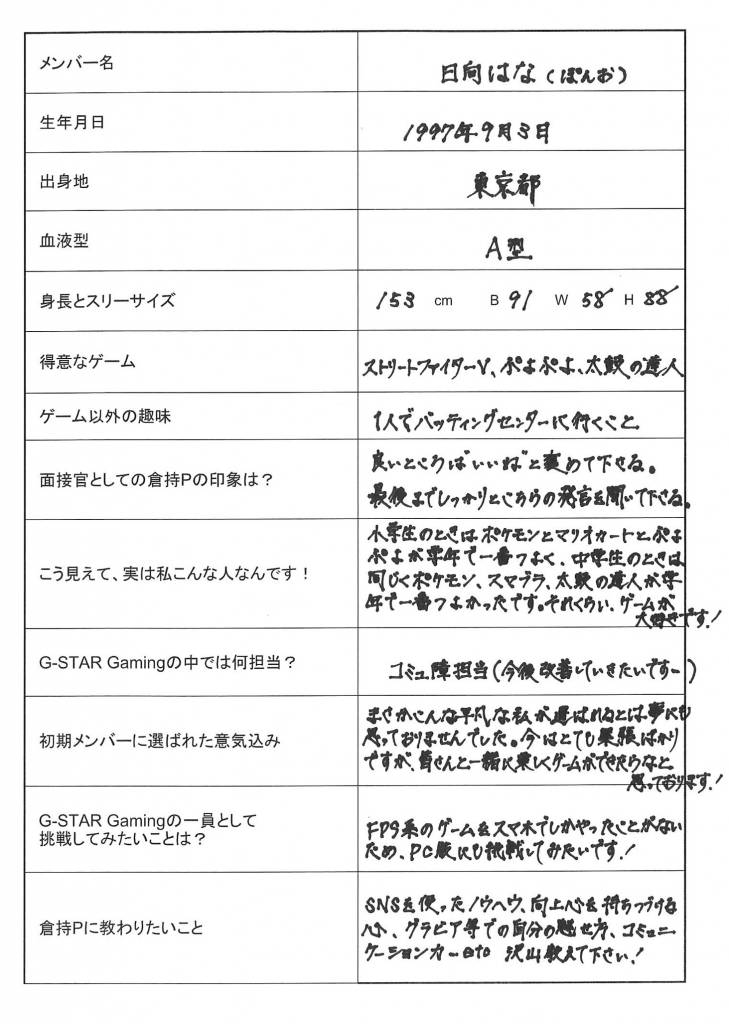 メンバー名
日向はな(ぽんお)
生年月日
1997年9月3日
出身地
東京都
血液型
A型
身長とスリーサイズ
153 cm B 91 W 58 H 88
得意なゲーム
ストリートファイターV、ぷよぷよ、太鼓の達人
ゲーム以外の趣味
1人でバッティングセンターに行くこと
面接官としての倉持Pの印象は？
良いところは"いいね"と褒めて下さる。
最後までしっかりとこちらの発言を聞いて下さる。
こう見えて、実は私こんな人なんです！
小学生のときはポケモンとマリオカートとぷよ
ぷよが学年で一番つよく、中学生のときは
同じくポケモン、スマブラ、太鼓の達人が学
年で一番つよかったです。それくらい、ゲームが
大好きです！
G-STAR Gamingの中では何担当？
コミュ障担当(今後改善していきたいですー)
初期メンバーに選ばれた意気込み
まさかこんな平凡な私が選ばれるとは夢にも
思っておりませんでした。今はとても緊張ばかり
ですが、皆さんと一緒に楽しくゲームができたらなと
思っております！
G-STAR Gamingの一員として
挑戦してみたいことは？
FPS系のゲームをスマホでしかやったことがない
ため、PC版にも挑戦してみたいです！
倉持Pに教わりたいこと
SNSを使ったノウハウ、向上心を持ちつづける
心、グラビア等での自分の魅せ方、コミュニ
ケーション力…etc 沢山教えて下さい！